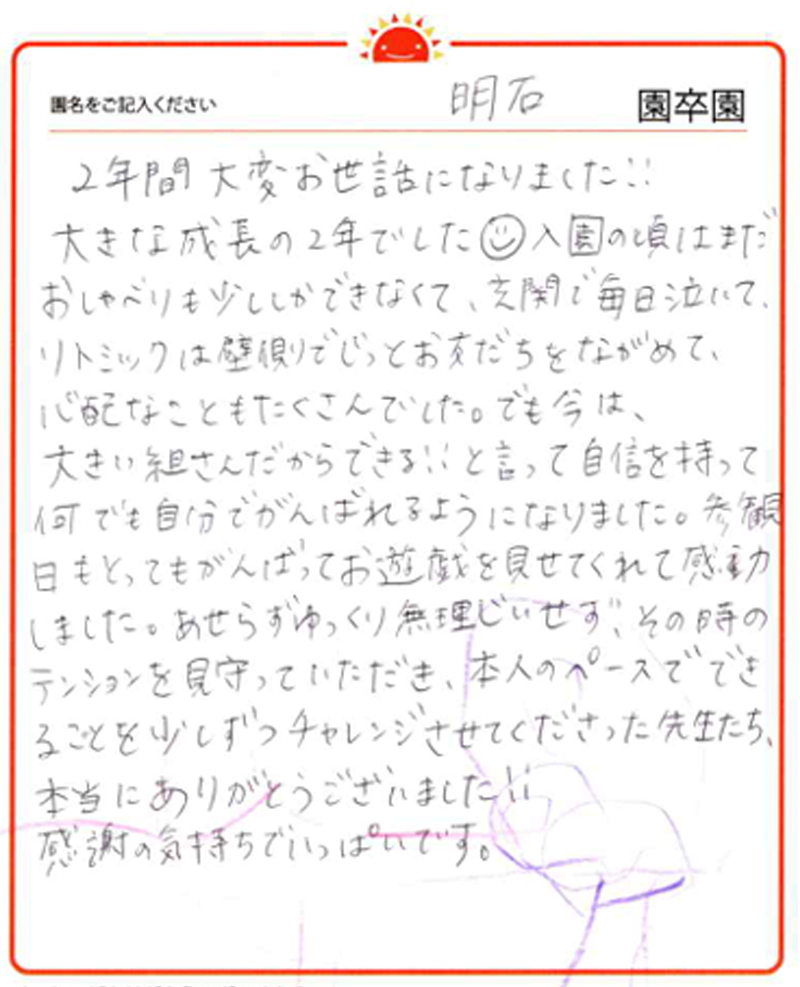 園名をご記入ください 明石 園卒園
2年間 大変お世話になりました!!
大きな成長の2年でした☺入園の頃はまだ
おしゃべりも少ししかできなくて、玄関で毎日泣いて、
リトミックは壁側でじっとお友だちをながめて、
心配なこともたくさんでした。でも今は、
大きい組さんだからできる!!と言って自信を持って
何でも自分でがんばれるようになりました。参観
日もとってもがんばってお遊戯を見せてくれて感動
しました。あせらずゆっくり無理じいせず、その時の
テンションを見守っていただき、本人のペースででき
ることを少しずつチャレンジさせてくださった先生たち、
本当にありがとうございました!!
感謝の気持ちでいっぱいです。